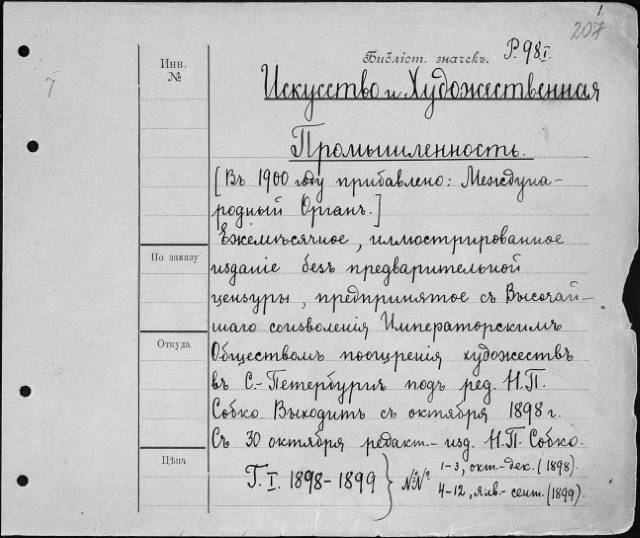 1.
207
Библіот. значекъ. Р. 98 I.
Инв.
№
7
Искусство и Художественная
Промышленность.
[Въ 1900 году прибавлено: Междуна-
родный Органъ.]
Ежемѣсячное, иллюстрированное
По заказу
изданіе безъ предварительной
цензуры, предпринятое съ Высочай-
шаго соизволенія Императорскимъ
Откуда
Обществомъ поощренія художествъ
въ С.-Петербургѣ подъ ред. Н.П.
Собко. Выходитъ съ октября 1898 г.
Съ 30 октября редакт.-изд. Н.П. Собко.
Цѣна
Т. I. 1898-1899 } №№
1-3, окт.-дек. (1898).
4-12, янв.-сент. (1899).